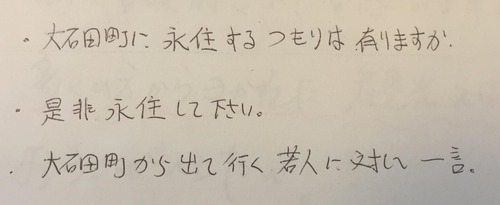 ・大石田町に永住するつもりは有りますか.
・是非永住して下さい。
・大石田町から出て行く若人に対して一言。